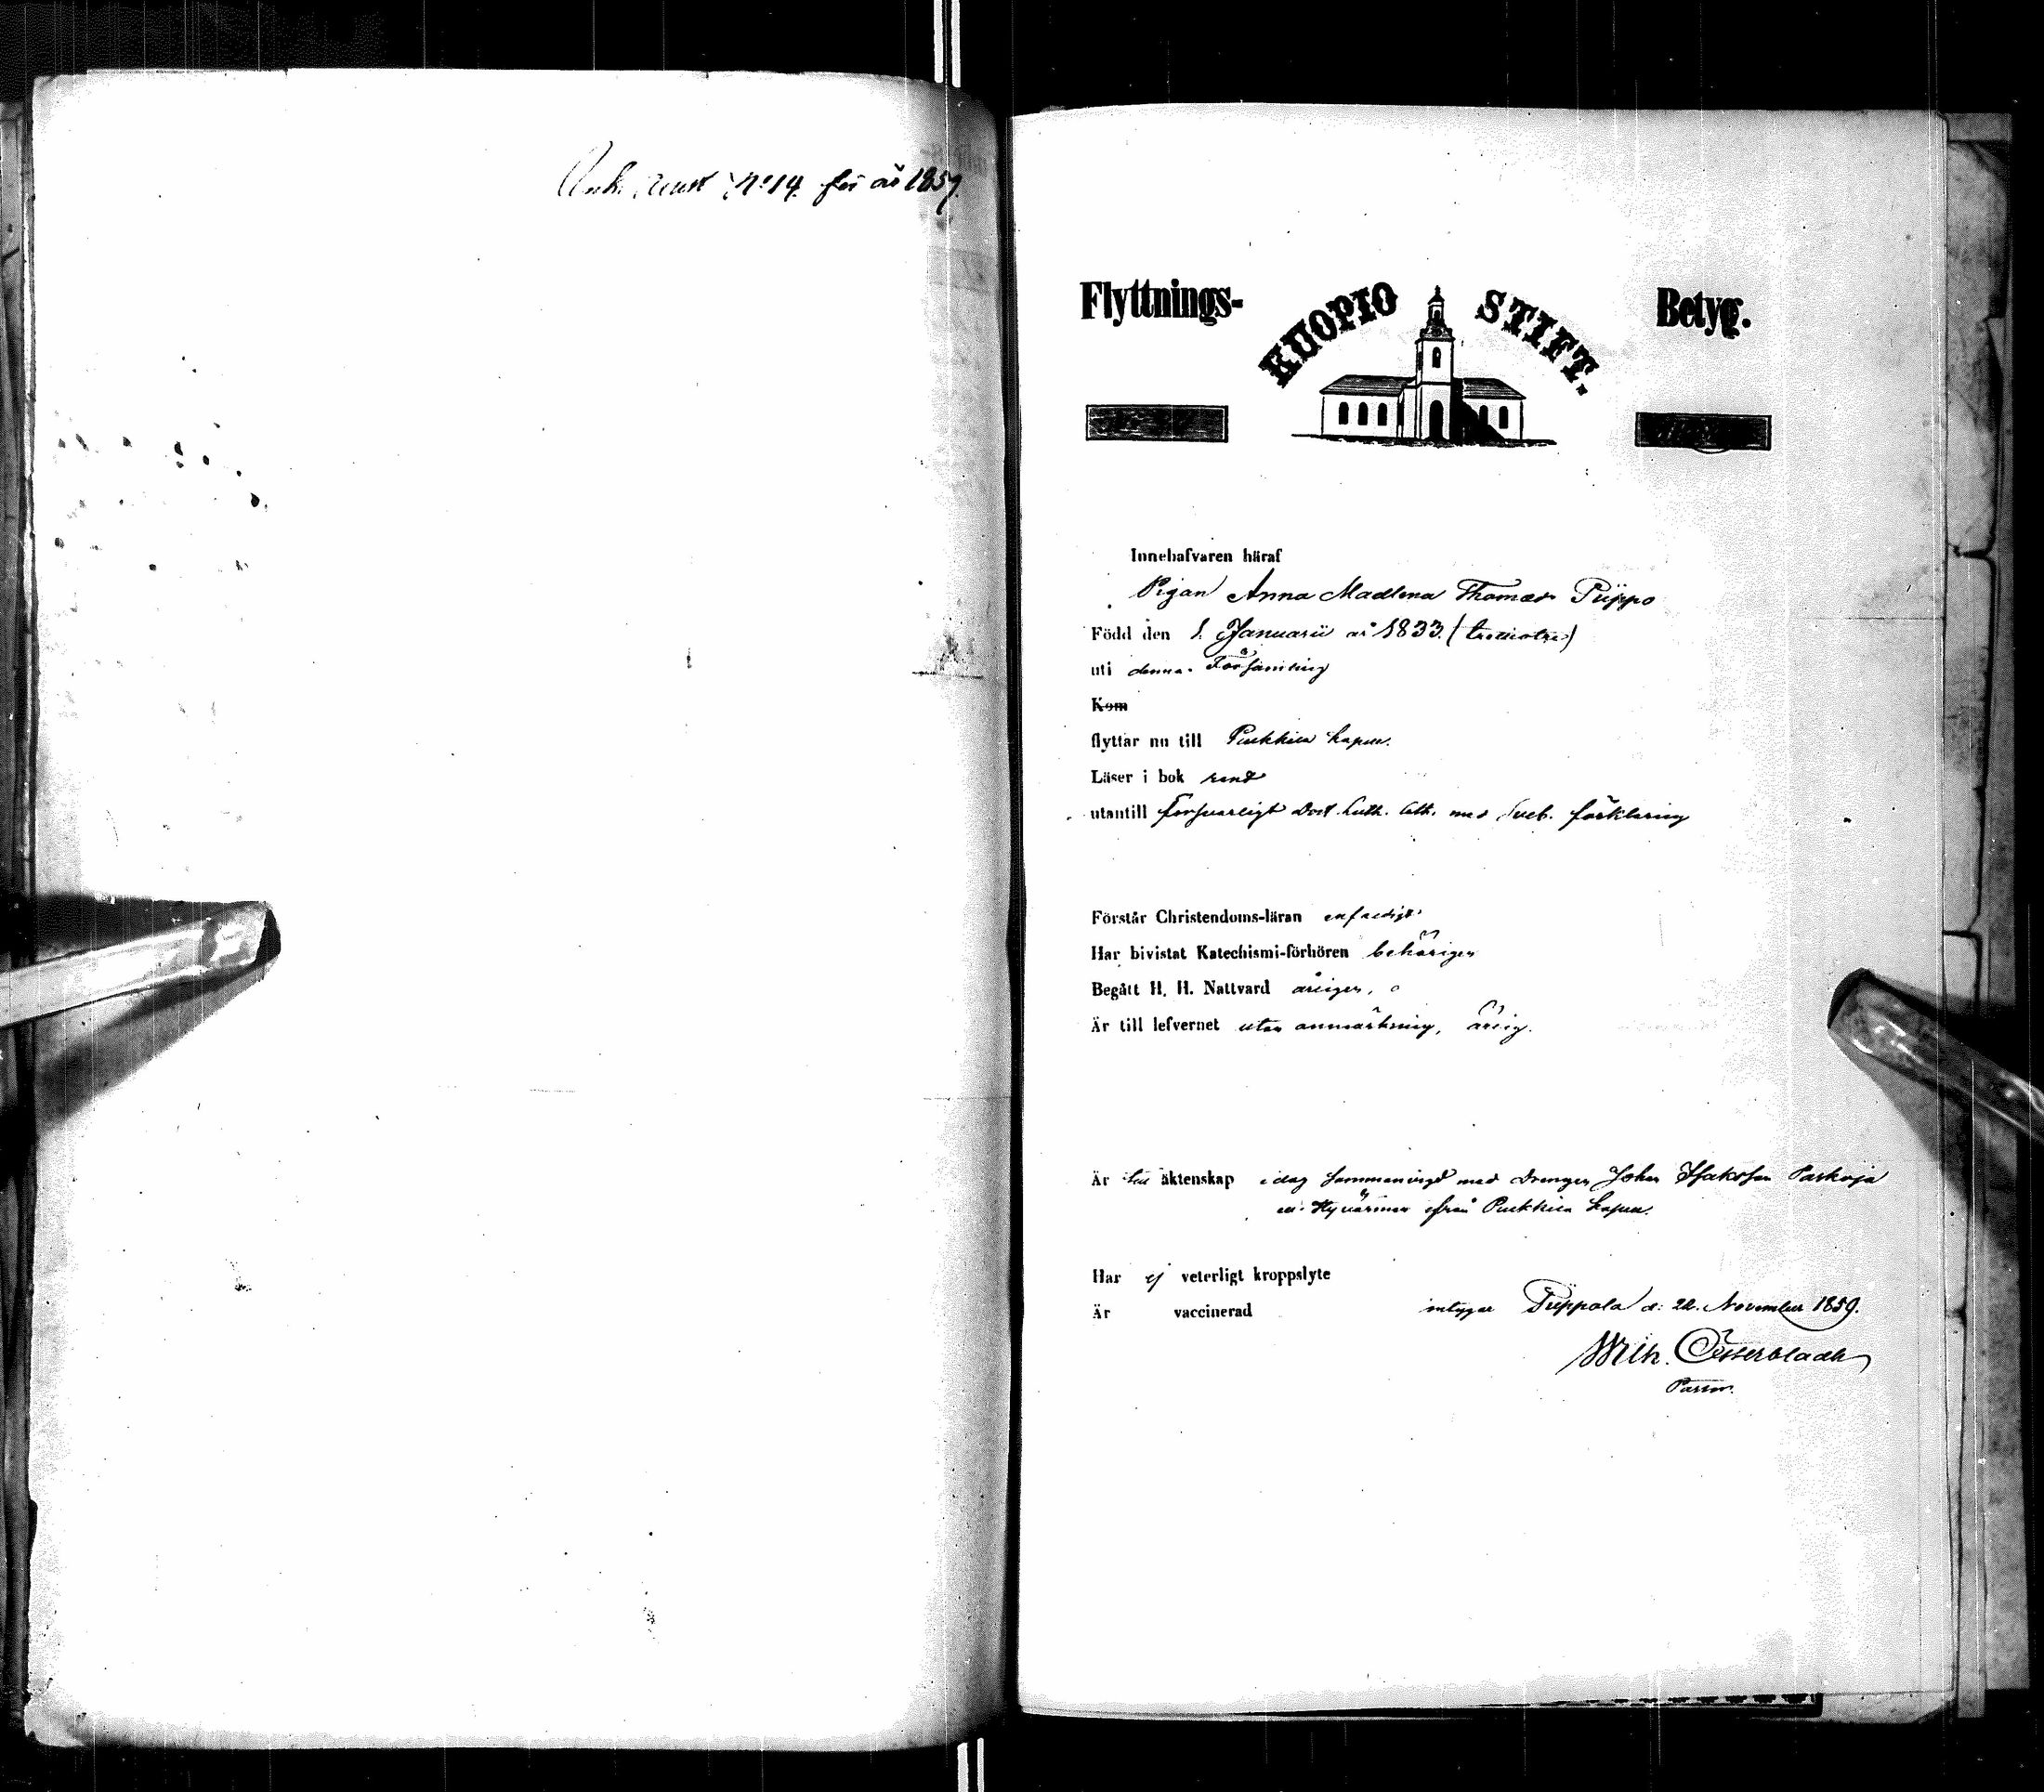 N:o 14. för år 1859.
Flyttnings- KUOPIO STIFT. Betyg.
Innehafvaren häraf
Pigan Anna Madlena Thomasd:r Piippo
Född den 1. Januarii år 1833. (trettiotre)
uti denna Församling
Kom
flyttar nu till Pulkkila Capell.
Läser i bok rent
utantill försvarligt Doct. Luth. Cth. med Sveb. förklaring
Förstår Christendoms-läran enfaldigt
Har bivistat Katechismi-förhören behörigen
Begått H. H. Nattvard årligen,
Är till lefvernet utan anmärkning, ärlig.
Är till äktenskap i dag sammanvigd med Drengen Johan Isaksson
från Pulkkila Capell.
Har ej veterligt kroppslyte
Är vaccinerad intygar Piippola d: 22. November 1859.
Wilh. Österbladh
Pastor.